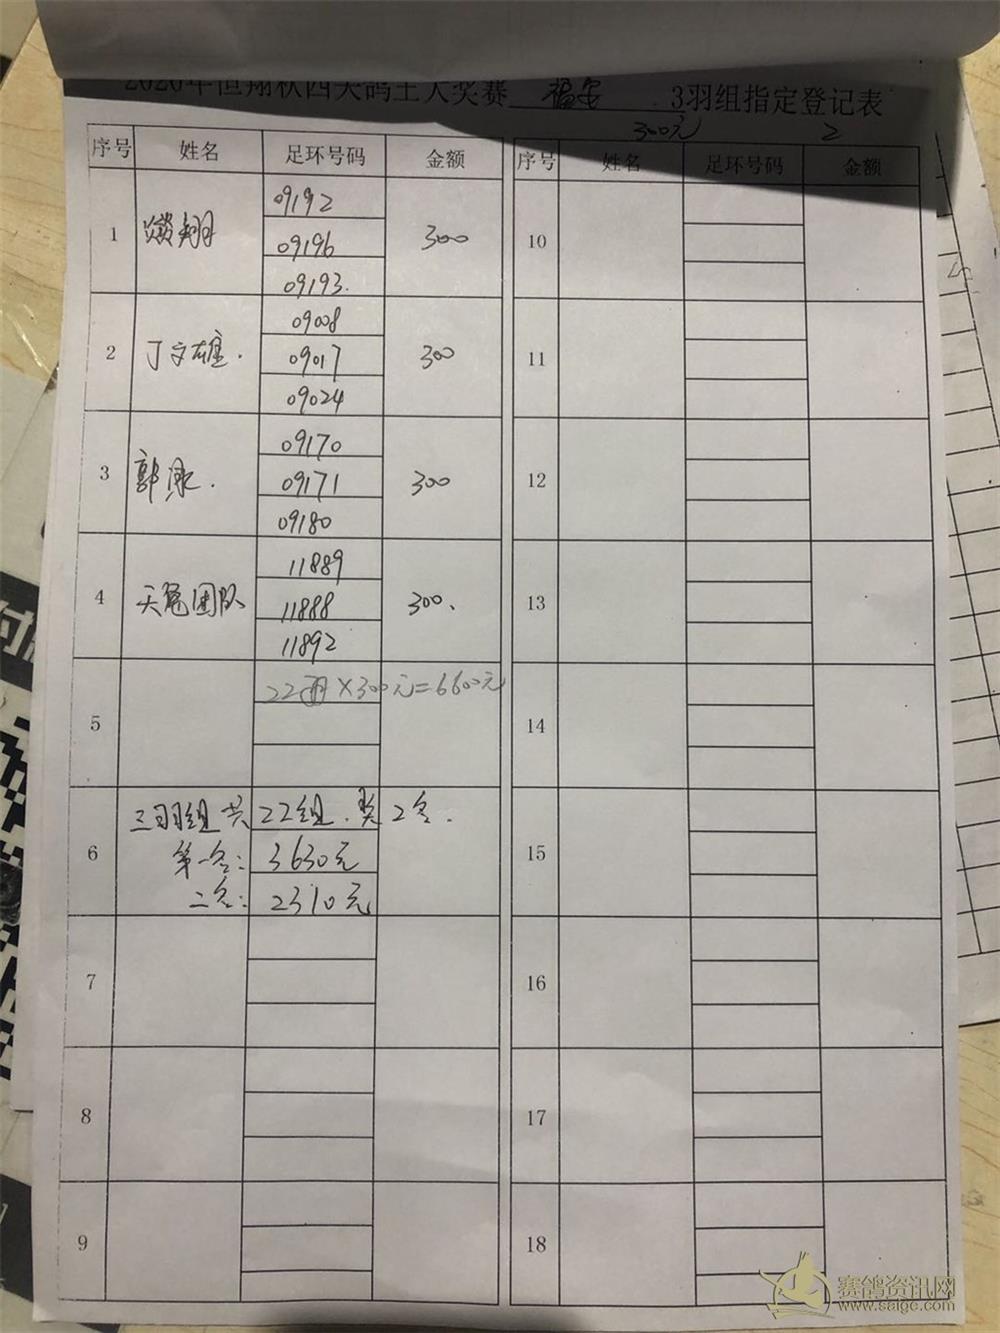 2020年恒翔秋四关鸽王大奖赛 福安 3羽组指定登记表
300元 2
序号 姓名 足环号码 金额 序号 姓名 足环号码 金额
1 翔 09192 300 10
09196
09193.
2 丁文雄. 09008 300 11
09017
09024
3 郭 . 09170 300 12
09171
09180
4 天 团队 11889 300. 13
11888
11892
5 22 ×300元=6600元 14
三羽组共22组.奖2名.
6 第一名: 3630元 15
二名: 2310元
7 16
8 17
9 18
赛鸽资讯网
www.saigc.com